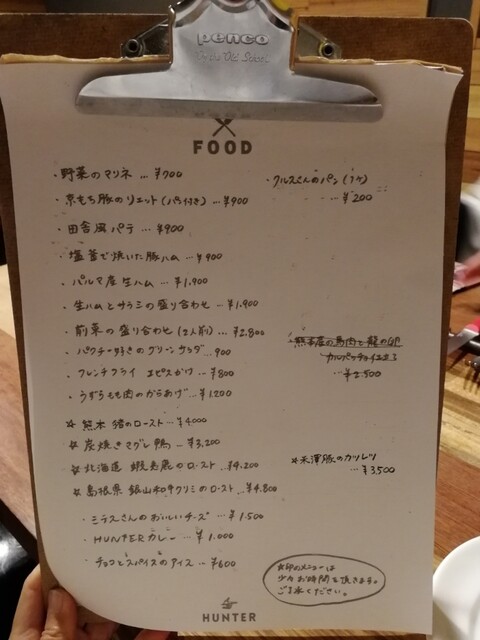 penco
FOOD
・野菜のマリネ … ¥700
・京もち豚のリエット(パン付き) … ¥900
・田舎風パテ … ¥900
・塩釜で焼いた豚ハム … ¥900
・パルマ産生ハム … ¥1,900
・生ハムとサラミの盛り合わせ … ¥1,900
・前菜の盛り合わせ(2人前) … ¥2,800
・パクチー好きのグリーンサラダ … 900
・フレンチフライ エピスがけ … ¥800
・うずらもも肉のからあげ … ¥1200
☆ 熊本 猪のロースト … ¥4000
☆ 炭焼きマグレ鴨 … ¥3,200
☆ 北海道 蝦夷鹿のロースト … ¥4,200
☆ 島根県 銀山和牛クリミのロースト … ¥4,800
・ミラスさんのおいしいチーズ … ¥1,500
・HUNTERカレー … ¥1,000
・チョコとスパイスのアイス … ¥600
・クルスさんのパン(1ヶ)
… ¥200
・熊本産の馬肉と龍の卵
カルパッチョ
¥2,500
☆米澤豚のカツレツ
… ¥3,500
☆印のメニューは
少々お時間を頂きます。
ご了承ください。
HUNTER